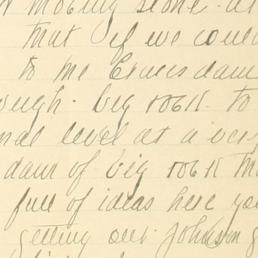 moving stone. at
that if we could
to me Ernies dam
ough. big rock to
nal level at a very
dam of big rock tha
full of ideas here you
getting out Johnson g